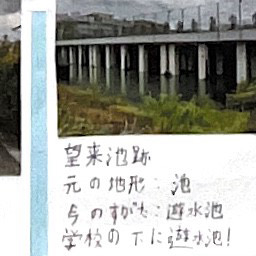 望来池跡
元の地形:池
今のすがた:遊水池
学校の下に遊水池!